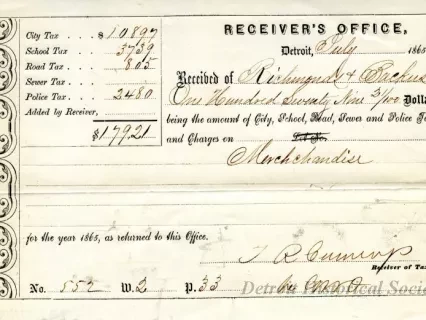 RECEIVER'S OFFICE,
City Tax . . . $ 108 97
School Tax . . . 37 39
Road Tax . . . 8 05
Sewer Tax . . .
Police Tax . . . 24 80
Added by Receiver,
$ 179 21
Detroit, July 1865
Received of Richmond & Backus
One Hundred Seventy Nine 21/100 Dolla
being the amount of City, School, Road, Sewer and Police T
and Charges on Lot No.
Merchchandise
for the year 1865, as returned to this Office.
Receiver of Tax
No. 552 W. 2 P. 33
Detroit Historical Soci